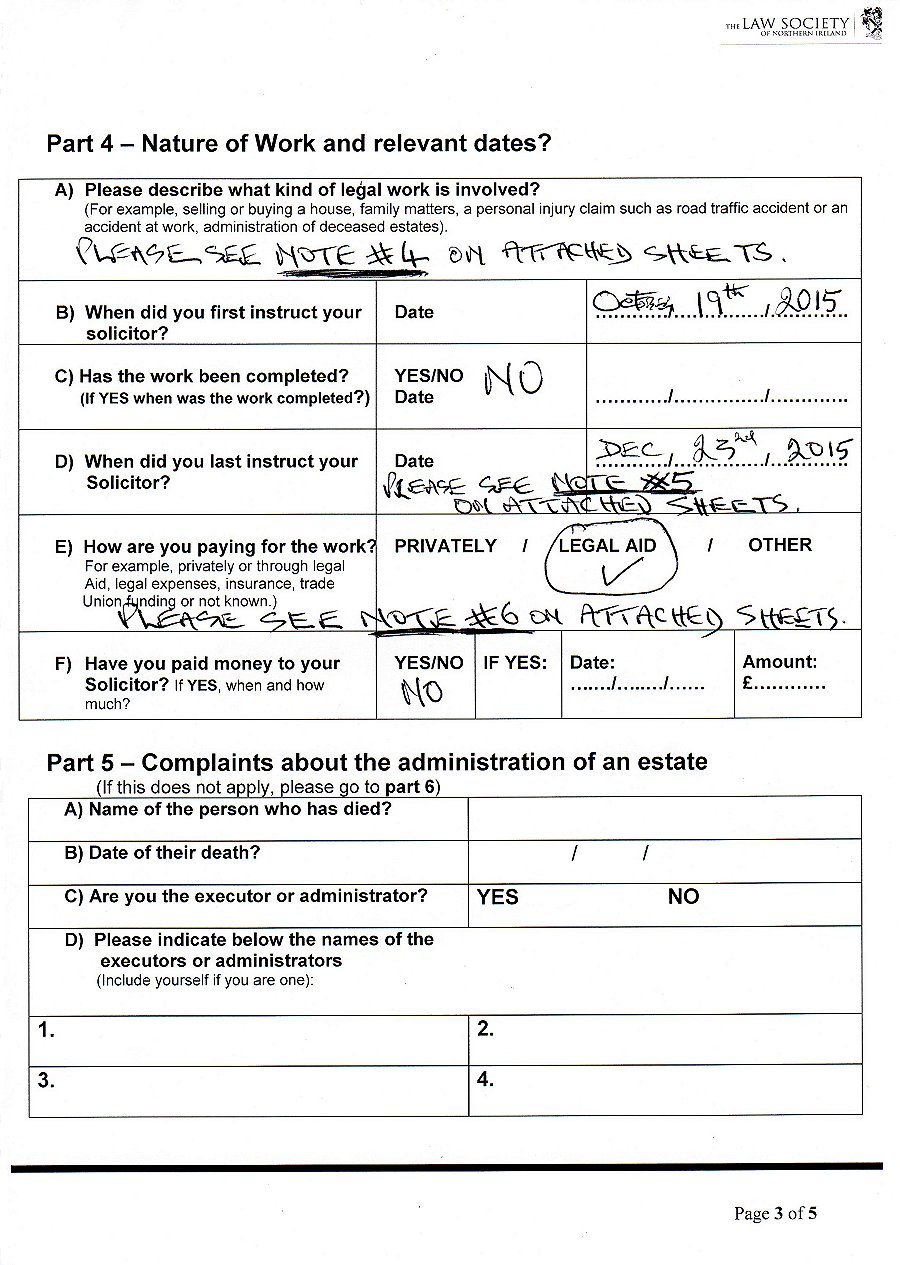 THE LAW SOCIETY
OF NORTHERN IRELAND
Part 4 – Nature of Work and relevant dates?
A) Please describe what kind of legal work is involved?
(For example, selling or buying a house, family matters, a personal injury claim such as road traffic accident or an
accident at work, administration of deceased estates).
PLEASE SEE NOTE #4 ON ATTACHED SHEETS.
B) When did you first instruct your
solicitor?
Date
October 19th, 2015
............/................/.............
C) Has the work been completed?
(If YES when was the work completed?)
YES/NO NO
Date
............/................/.............
D) When did you last instruct your
Solicitor?
Date
DEC, 23rd, 2015
............/................/.............
PLEASE SEE NOTE #5
ON ATTACHED SHEETS.
E) How are you paying for the work?
For example, privately or through legal
Aid, legal expenses, insurance, trade
Union funding or not known.)
PRIVATELY / LEGAL AID / OTHER
✓
PLEASE SEE NOTE #6 ON ATTACHED SHEETS.
F) Have you paid money to your
Solicitor? If YES, when and how
much?
YES/NO
NO
IF YES:
Date:
......./......../......
Amount:
£............
Part 5 – Complaints about the administration of an estate
(If this does not apply, please go to part 6)
A) Name of the person who has died?
B) Date of their death?
/ /
C) Are you the executor or administrator?
YES NO
D) Please indicate below the names of the
executors or administrators
(Include yourself if you are one):
1.
2.
3.
4.
Page 3 of 5